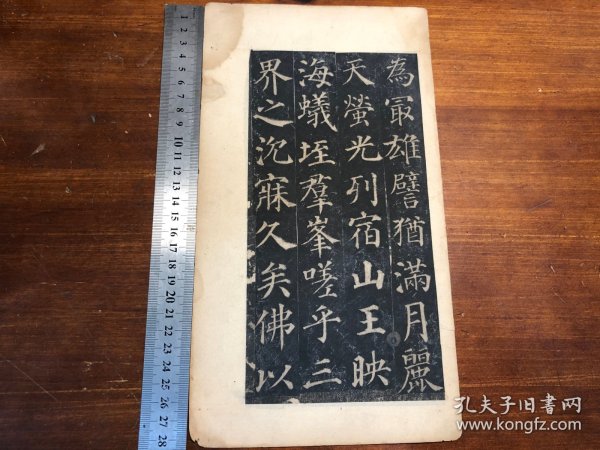 為冣雄譬猶滿月麗
天螢光列宿山王映
海蟻垤羣峯嗟乎三
界之沉寐久矣佛以
1 2 3 4 5 6 7 8 9 10 11 12 13 14 15 16 17 18 19 20 21 22 23 24 25 26 27 28
孔夫子旧书网
www.kongfz.com